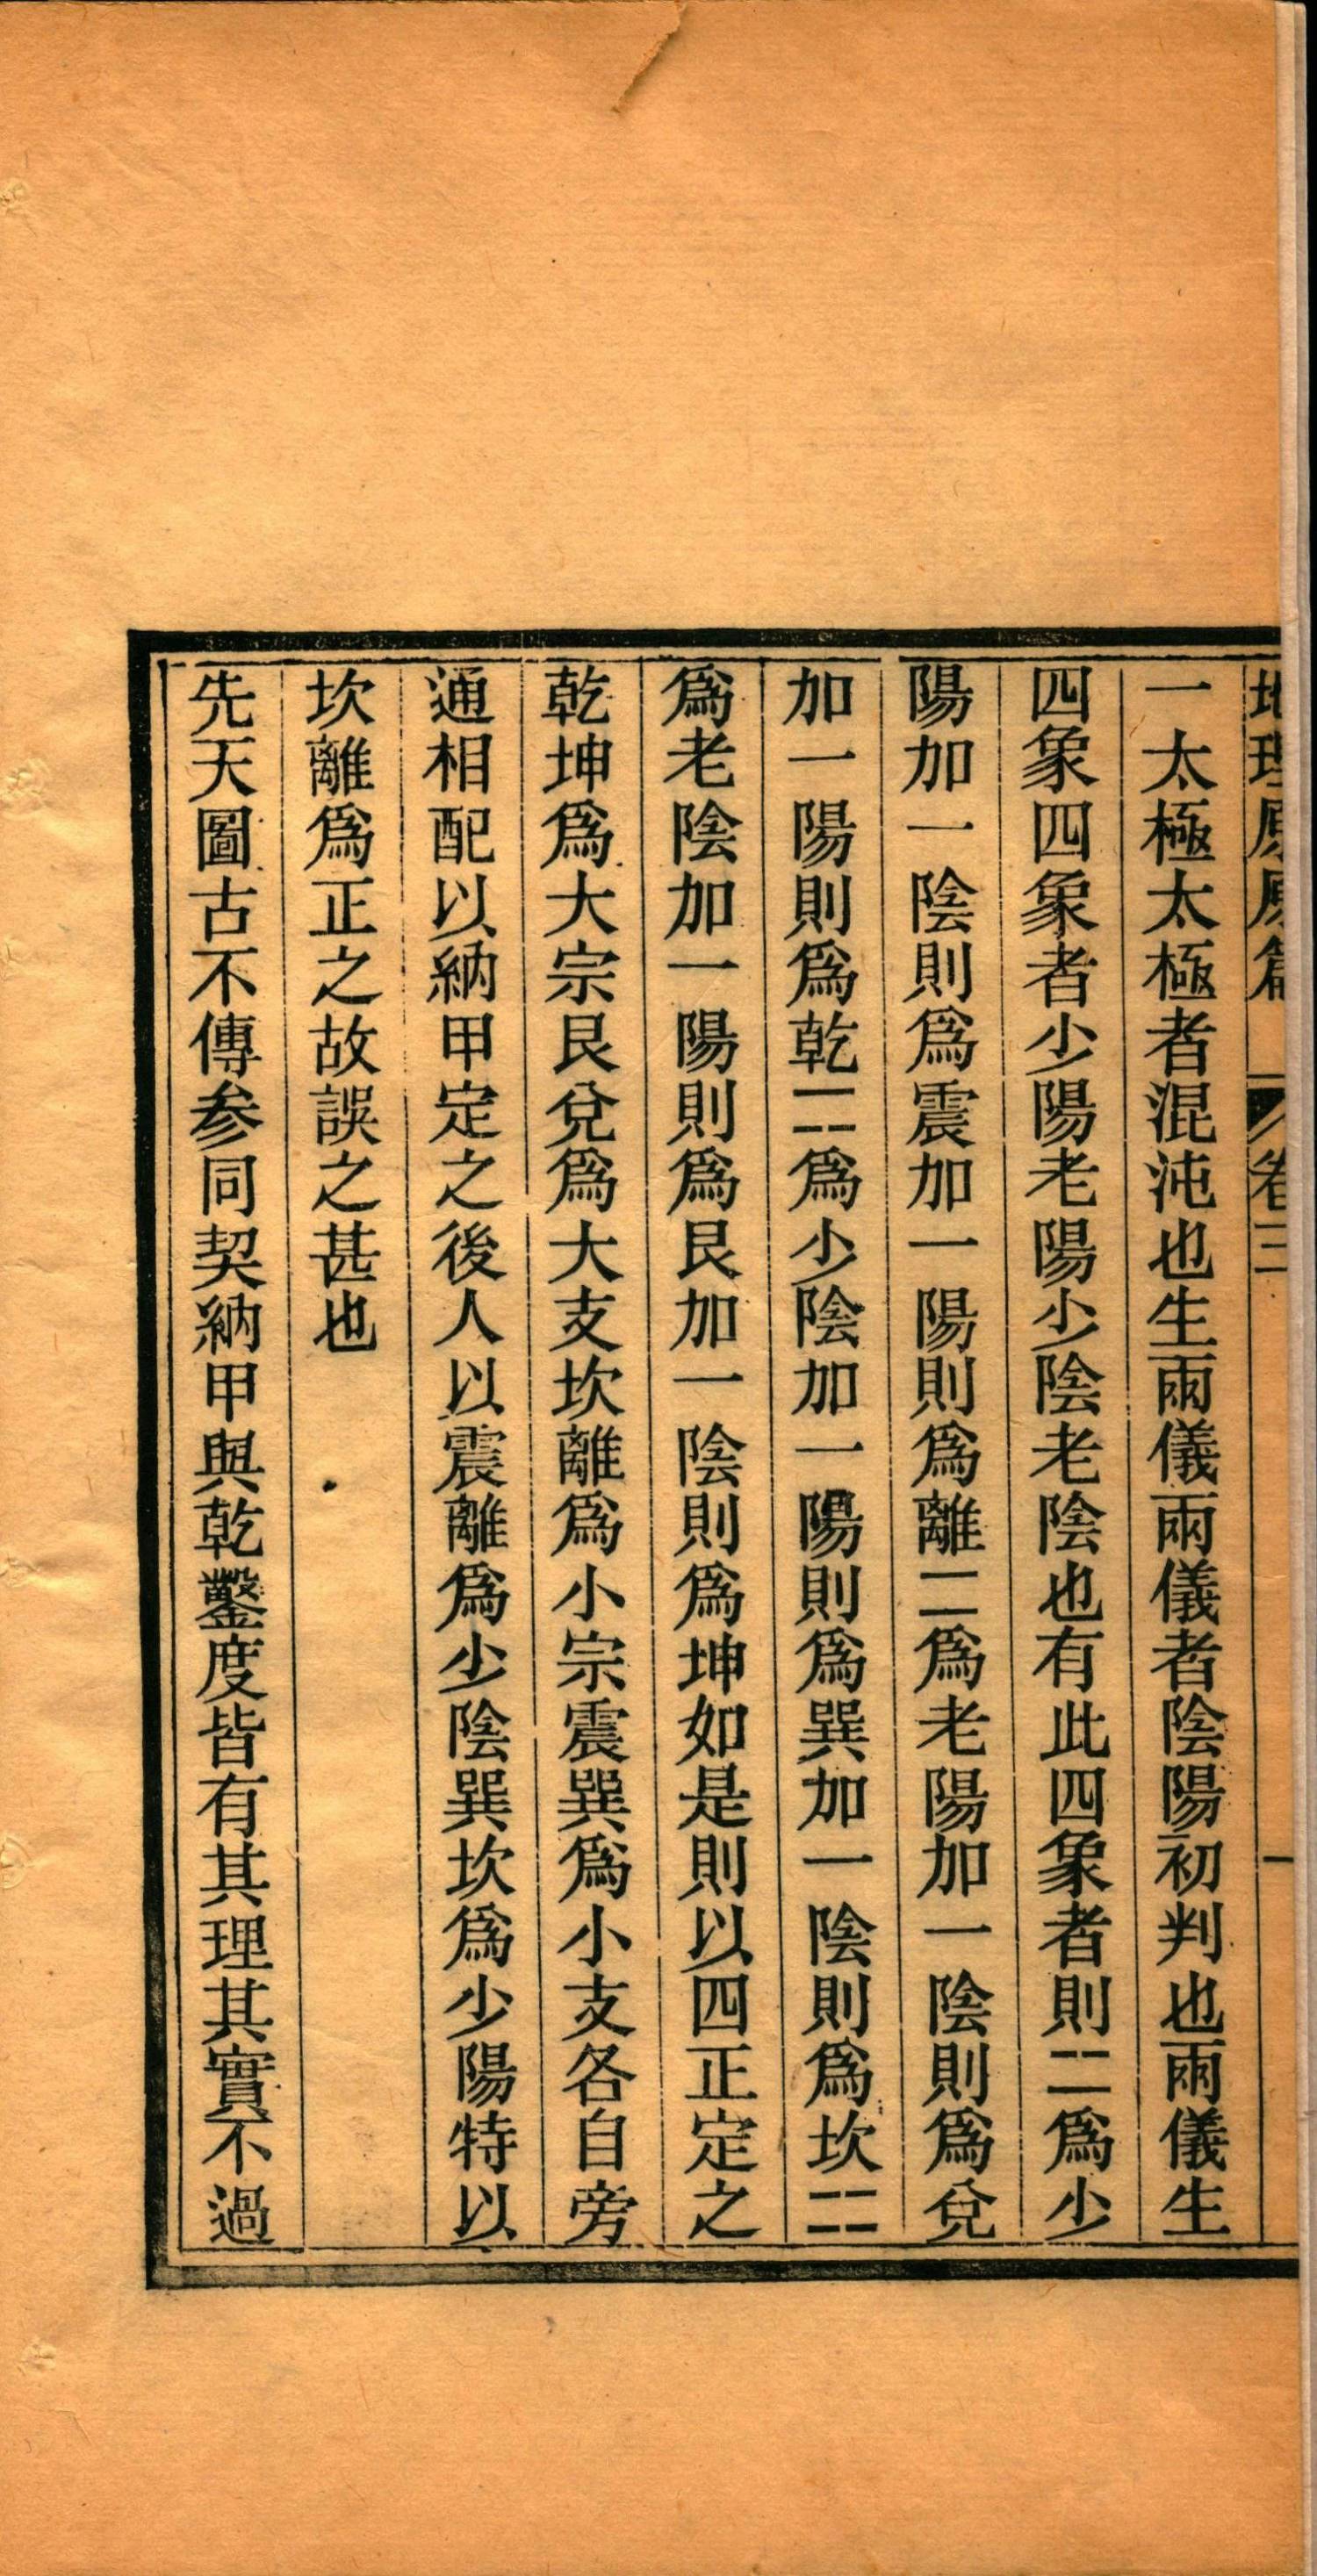 地理原原篇 卷三 一
一太極太極者混沌也生兩儀兩儀者陰陽初判也兩儀生
四象四象者少陽老陽少陰老陰也有此四象者則⚍爲少
陽加一陰則爲震加一陽則爲離⚌爲老陽加一陰則爲兌
加一陽則爲乾⚎爲少陰加一陽則爲巽加一陰則爲坎⚏
爲老陰加一陽則爲艮加一陰則爲坤如是則以四正定之
乾坤爲大宗艮兌爲大支坎離爲小宗震巽爲小支各自旁
通相配以納甲定之後人以震離爲少陰巽坎爲少陽特以
坎離爲正之故誤之甚也
先天圖古不傳參同契納甲與乾鑿度皆有其理其實不過